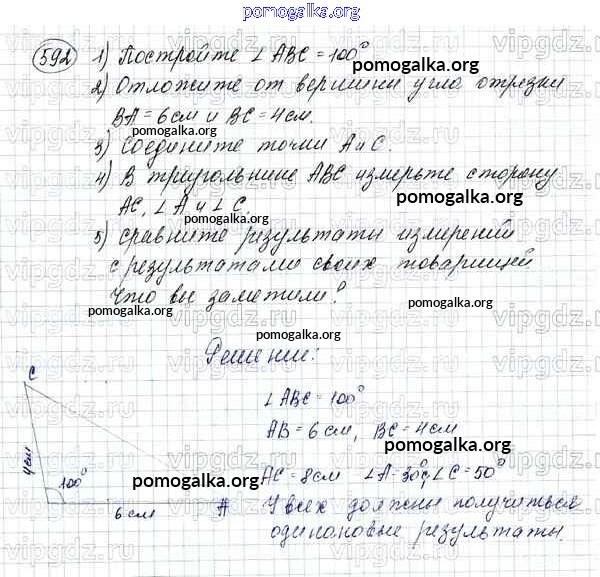 pomogalka.org
592 1) Постройте ∠ ABC = 100°
pomogalka.org
2) Отложите от вершины угла отрезки
BA = 6 см и BC = 4 см.
pomogalka.org
3) Соедините точки A и C.
4) В треугольнике ABC измерьте сторону
pomogalka.org
AC, ∠ A и ∠ C.
pomogalka.org
5) сравните результаты измерений
с результатами своих товарищей
Что вы заметили?
pomogalka.org
pomogalka.org
Решение:
C
∠ ABC = 100°
4 см
AB = 6 см, BC = 4 см
pomogalka.org
100°
pomogalka.org
AC = 8 см ∠A = 30°, ∠C = 50°
6 см
A
У всех должны получиться
одинаковые результаты.
pomogalka.org